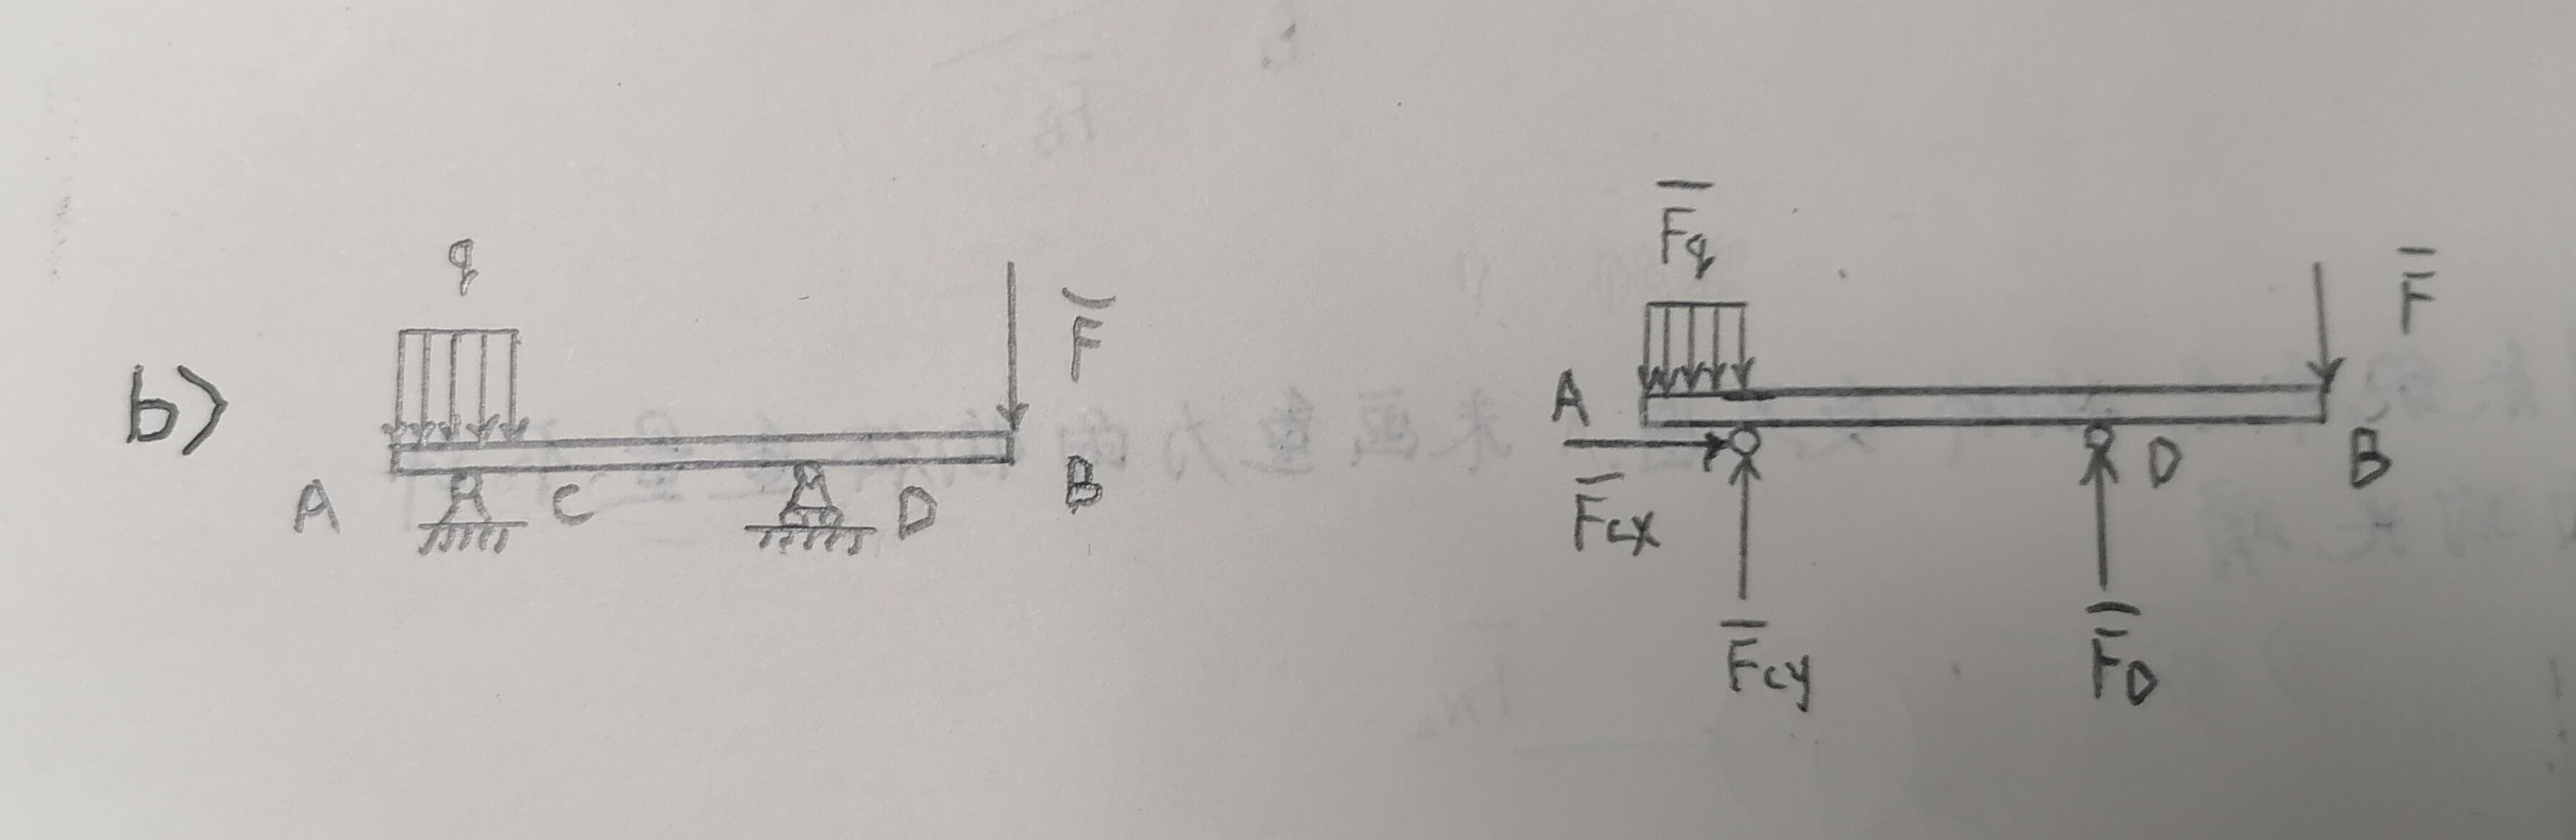 b)
q
F̅
A
C
D
B
F̅q
F̅
A
D
B
F̅cx
F̅cy
F̅D